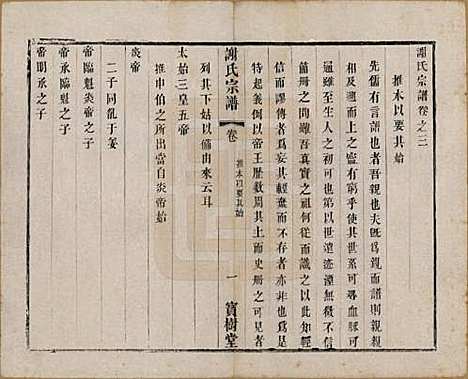 謝氏宗譜卷之二
推本以要其始
先儒有言譜也者吾親也夫既為吾親而譜則親親
相及以至於目上之盡有窮乎使其世系可尋血脈可
通雖至生人之初可也第以世遠迹湮無徵不信
冊之間雖吾真實之祖何從而識之以此知輕
信而謬傳者為妄其輕棄而不存者亦非也於是
特起義例以帝王歷數為其主而史冊之可見者
列其下姑以備由來云耳
太始三皇五帝
推申伯之所出當自炎帝始
炎帝
二子同氣于姜
帝臨魁炎帝之子
帝承臨魁之子
帝明承之子
謝氏宗譜
卷
推本以要其始
一
寶樹堂